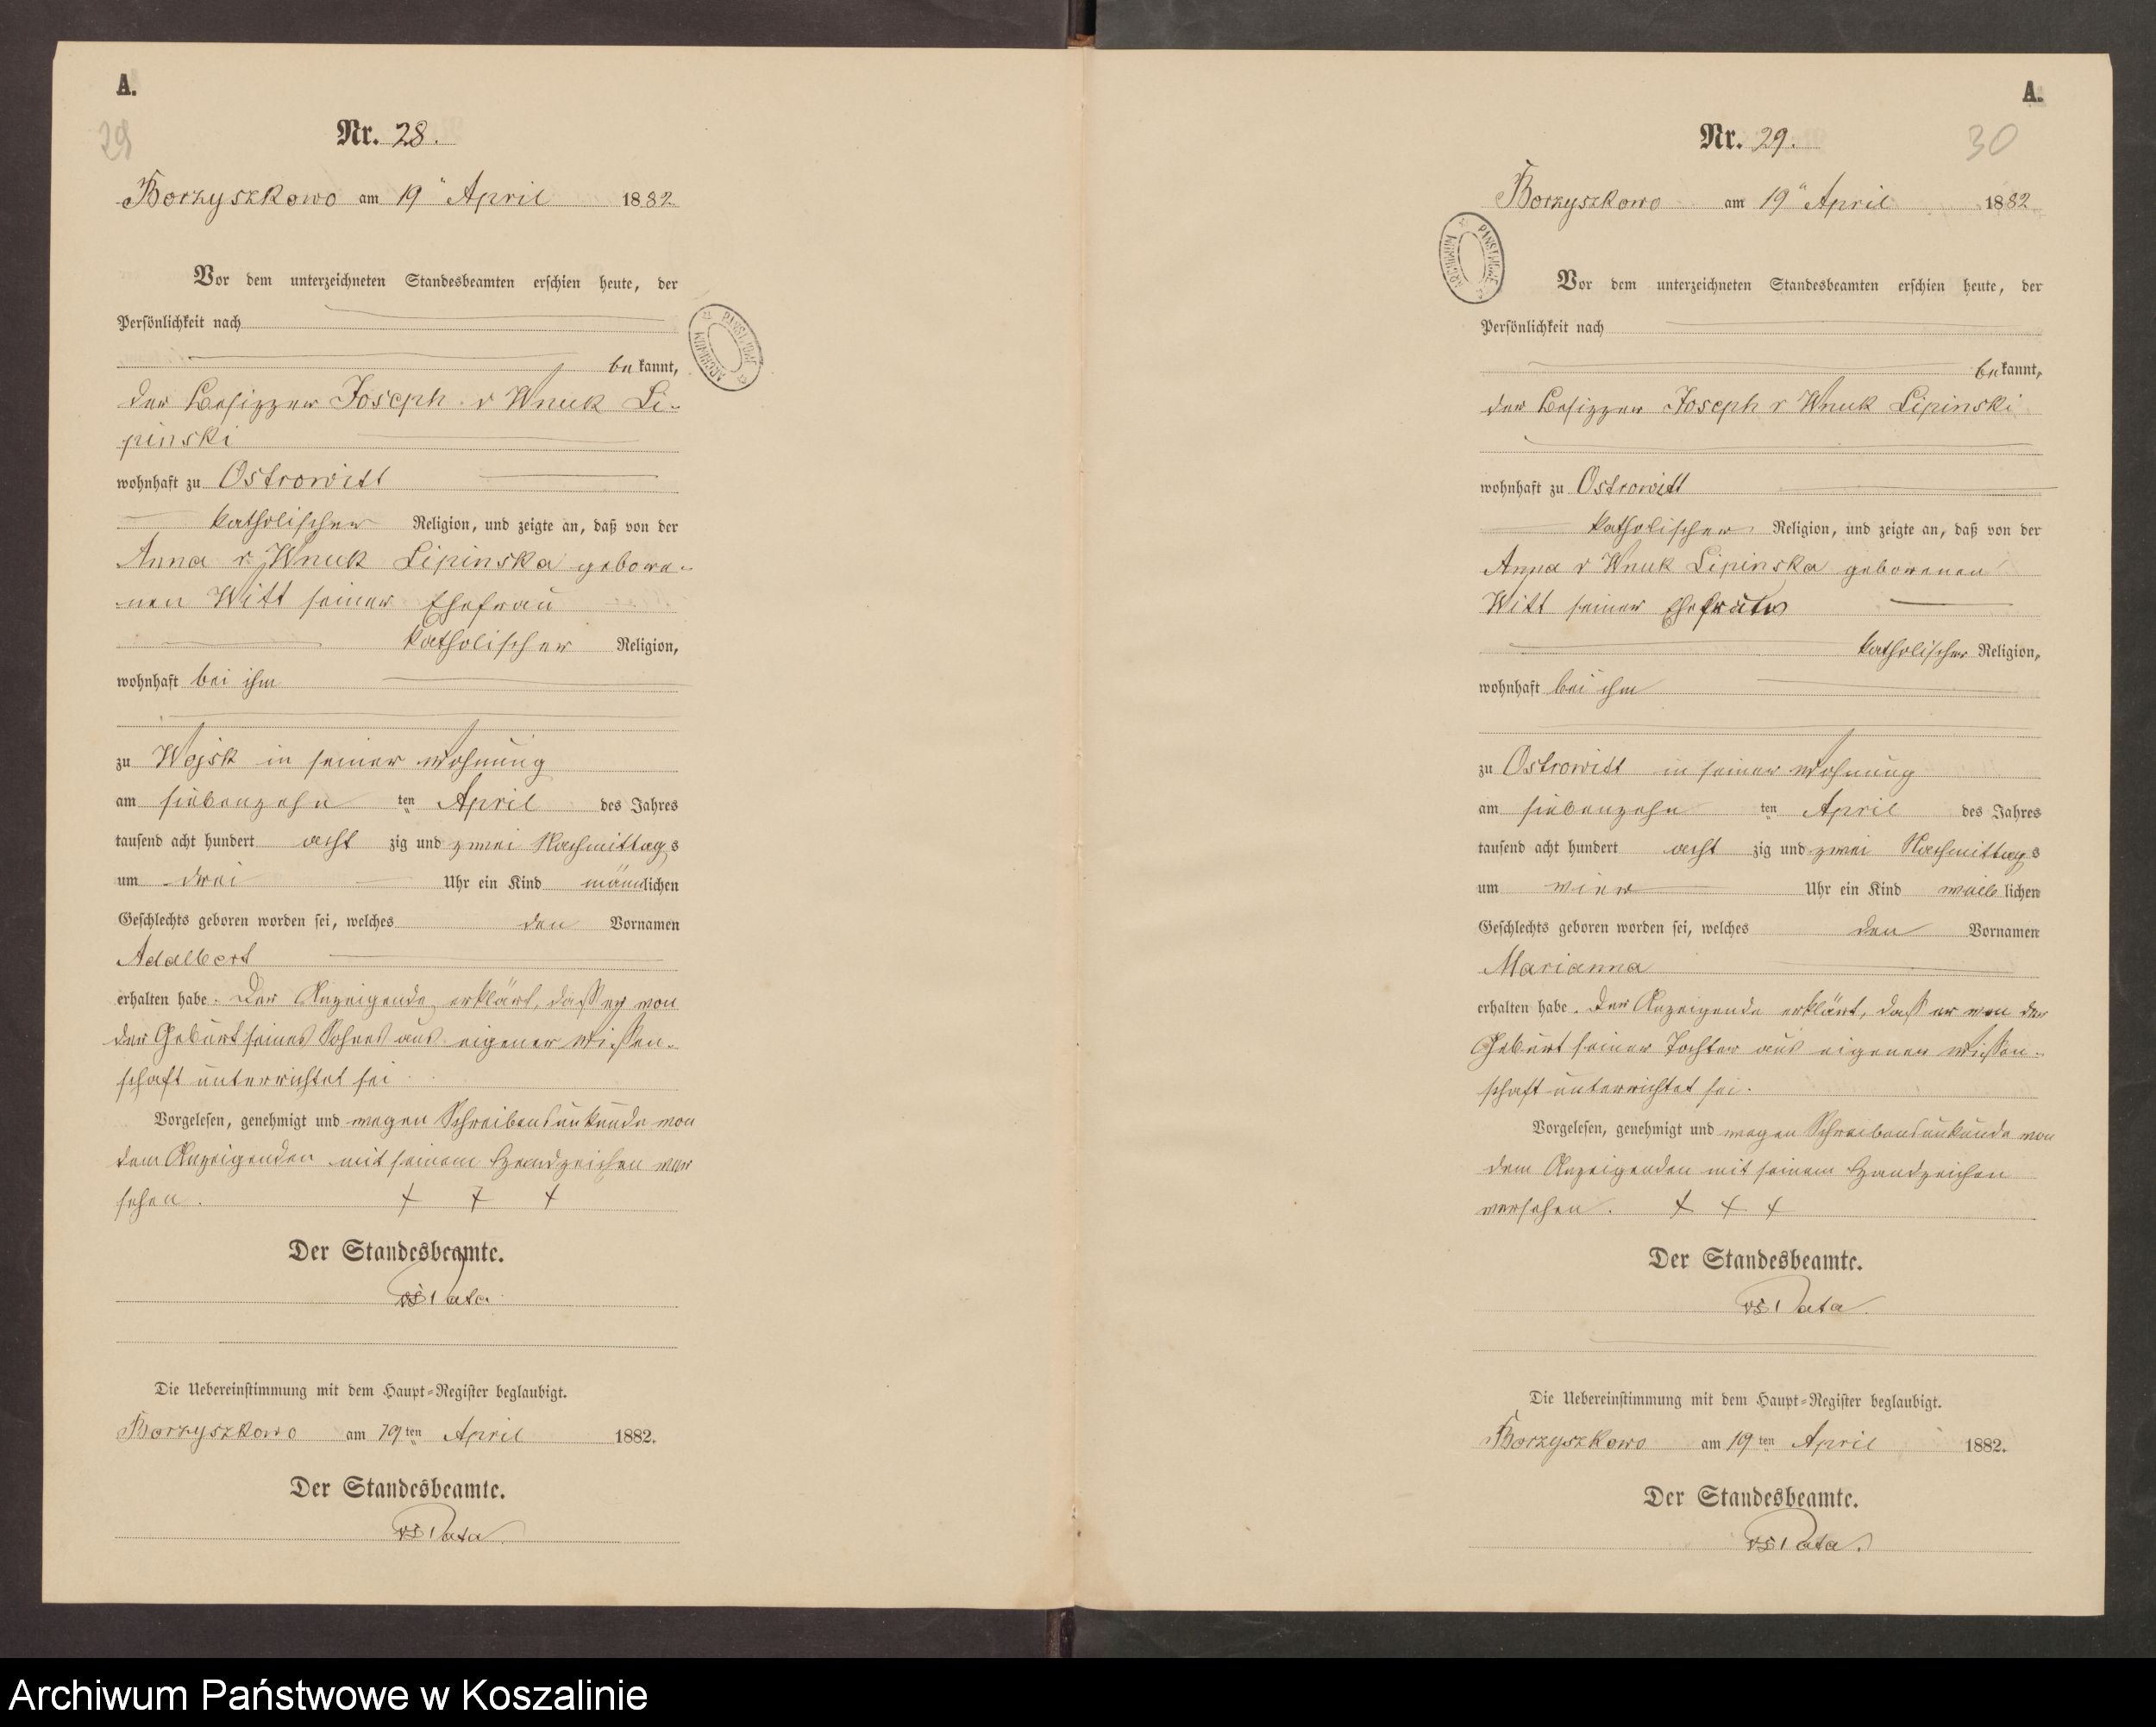 A.
29
Nr. 28.
Borzyszkowo am 19ᵗ April 1882
Vor dem unterzeichneten Standesbeamten erschien heute, der
Persönlichkeit nach
bekannt,
der Besitzer Joseph v Wnuk Li-
pinski
wohnhaft zu Ostrowitt
katholischer Religion, und zeigte an, daß von der
Anna v. Wnuk Lipinska gebore-
nen Witt seiner Ehefrau
katholischer Religion,
wohnhaft bei ihm
zu Wojsk in seiner Wohnung
am siebenzehn ten April des Jahres
tausend acht hundert acht zig und zwei Nachmittags
um drei Uhr ein Kind männlichen
Geschlechts geboren worden sei, welches den Vornamen
Adalbert
erhalten habe. Der Anzeigende erklärt, dass er von
der Geburt seines Sohnes aus eigener Wissen-
schaft unterrichtet sei
Vorgelesen, genehmigt und wegen Schreibensunkunde von
dem Anzeigenden mit seinem Handzeichen ver
sehen. + + +
Der Standesbeamte.
Die Uebereinstimmung mit dem Haupt-Register beglaubigt.
Borzyszkowo am 19ten April 1882.
Der Standesbeamte.
A.
30
Nr. 29.
Borzyszkowo am 19ᵗ April 1882
Vor dem unterzeichneten Standesbeamten erschien heute, der
Persönlichkeit nach
bekannt,
der Besitzer Joseph v Wnuk Lipinski
wohnhaft zu Ostrowitt
katholischer Religion, und zeigte an, daß von der
Anna v Wnuk Lipinska geborenen
Witt seiner Ehefrau
katholischer Religion,
wohnhaft bei ihm
zu Ostrowitt in seiner Wohnung
am siebenzehn ten April des Jahres
tausend acht hundert acht zig und zwei Nachmittags
um vier Uhr ein Kind weiblichen
Geschlechts geboren worden sei, welches den Vornamen
Marianna
erhalten habe. Der Anzeigende erklärt, dass er von der
Geburt seiner Tochter aus eigener Wissen-
schaft unterrichtet sei.
Vorgelesen, genehmigt und wegen Schreibensunkunde von
dem Anzeigenden mit seinem Handzeichen
versehen. + + +
Der Standesbeamte.
Die Uebereinstimmung mit dem Haupt-Register beglaubigt.
Borzyszkowo am 19ten April 1882.
Der Standesbeamte.
ARCHIWUM PAŃSTWOWE
ARCHIWUM PAŃSTWOWE
Archiwum Państwowe w Koszalinie